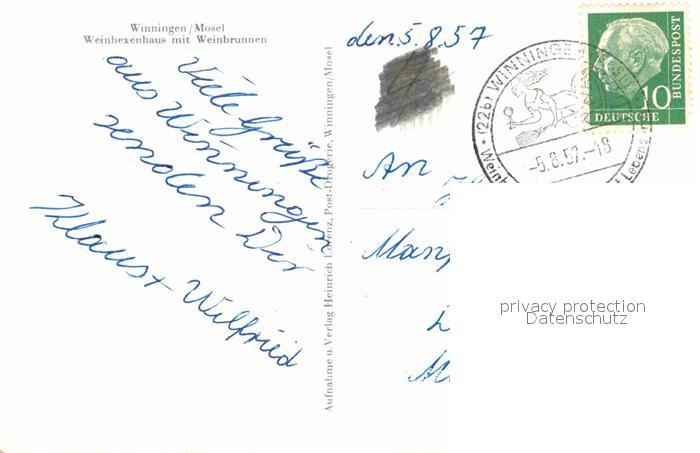 Winningen/Mosel
Weinhexenhaus mit Weinbrunnen
Viele Grüße
aus Winningen
senden Dir
Klaus + Wilfried
Aufnahme u. Verlag Heinrich Lorenz, Post-Drogerie, Winningen/Mosel
den 5.8.57
(22b) WINNINGEN
-5.8.57.-18
10
DEUTSCHE
BUNDESPOST
An
privacy protection
Datenschutz